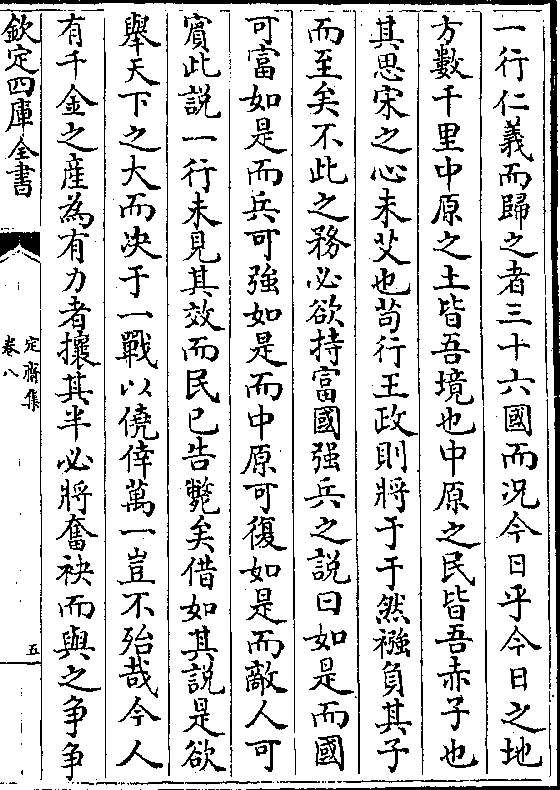 一行仁義而歸之者三十六國而況今日乎今日之地
方數千里中原之土皆吾境也中原之民皆吾赤子也
其思宋之心未艾也苟行王政則將于于然襁負其子
而至矣不此之務必欲持富國强兵之說曰如是而國
可富如是而兵可強如是而中原可復如是而敵人可
賓此說一行未見其效而民已告斃矣借如其說是欲
舉天下之大而决于一戰以僥倖萬一豈不殆哉今人
有千金之産為有力者攘其半必將奮袂而與之争争
欽定四庫全書
定齋集
卷八
五